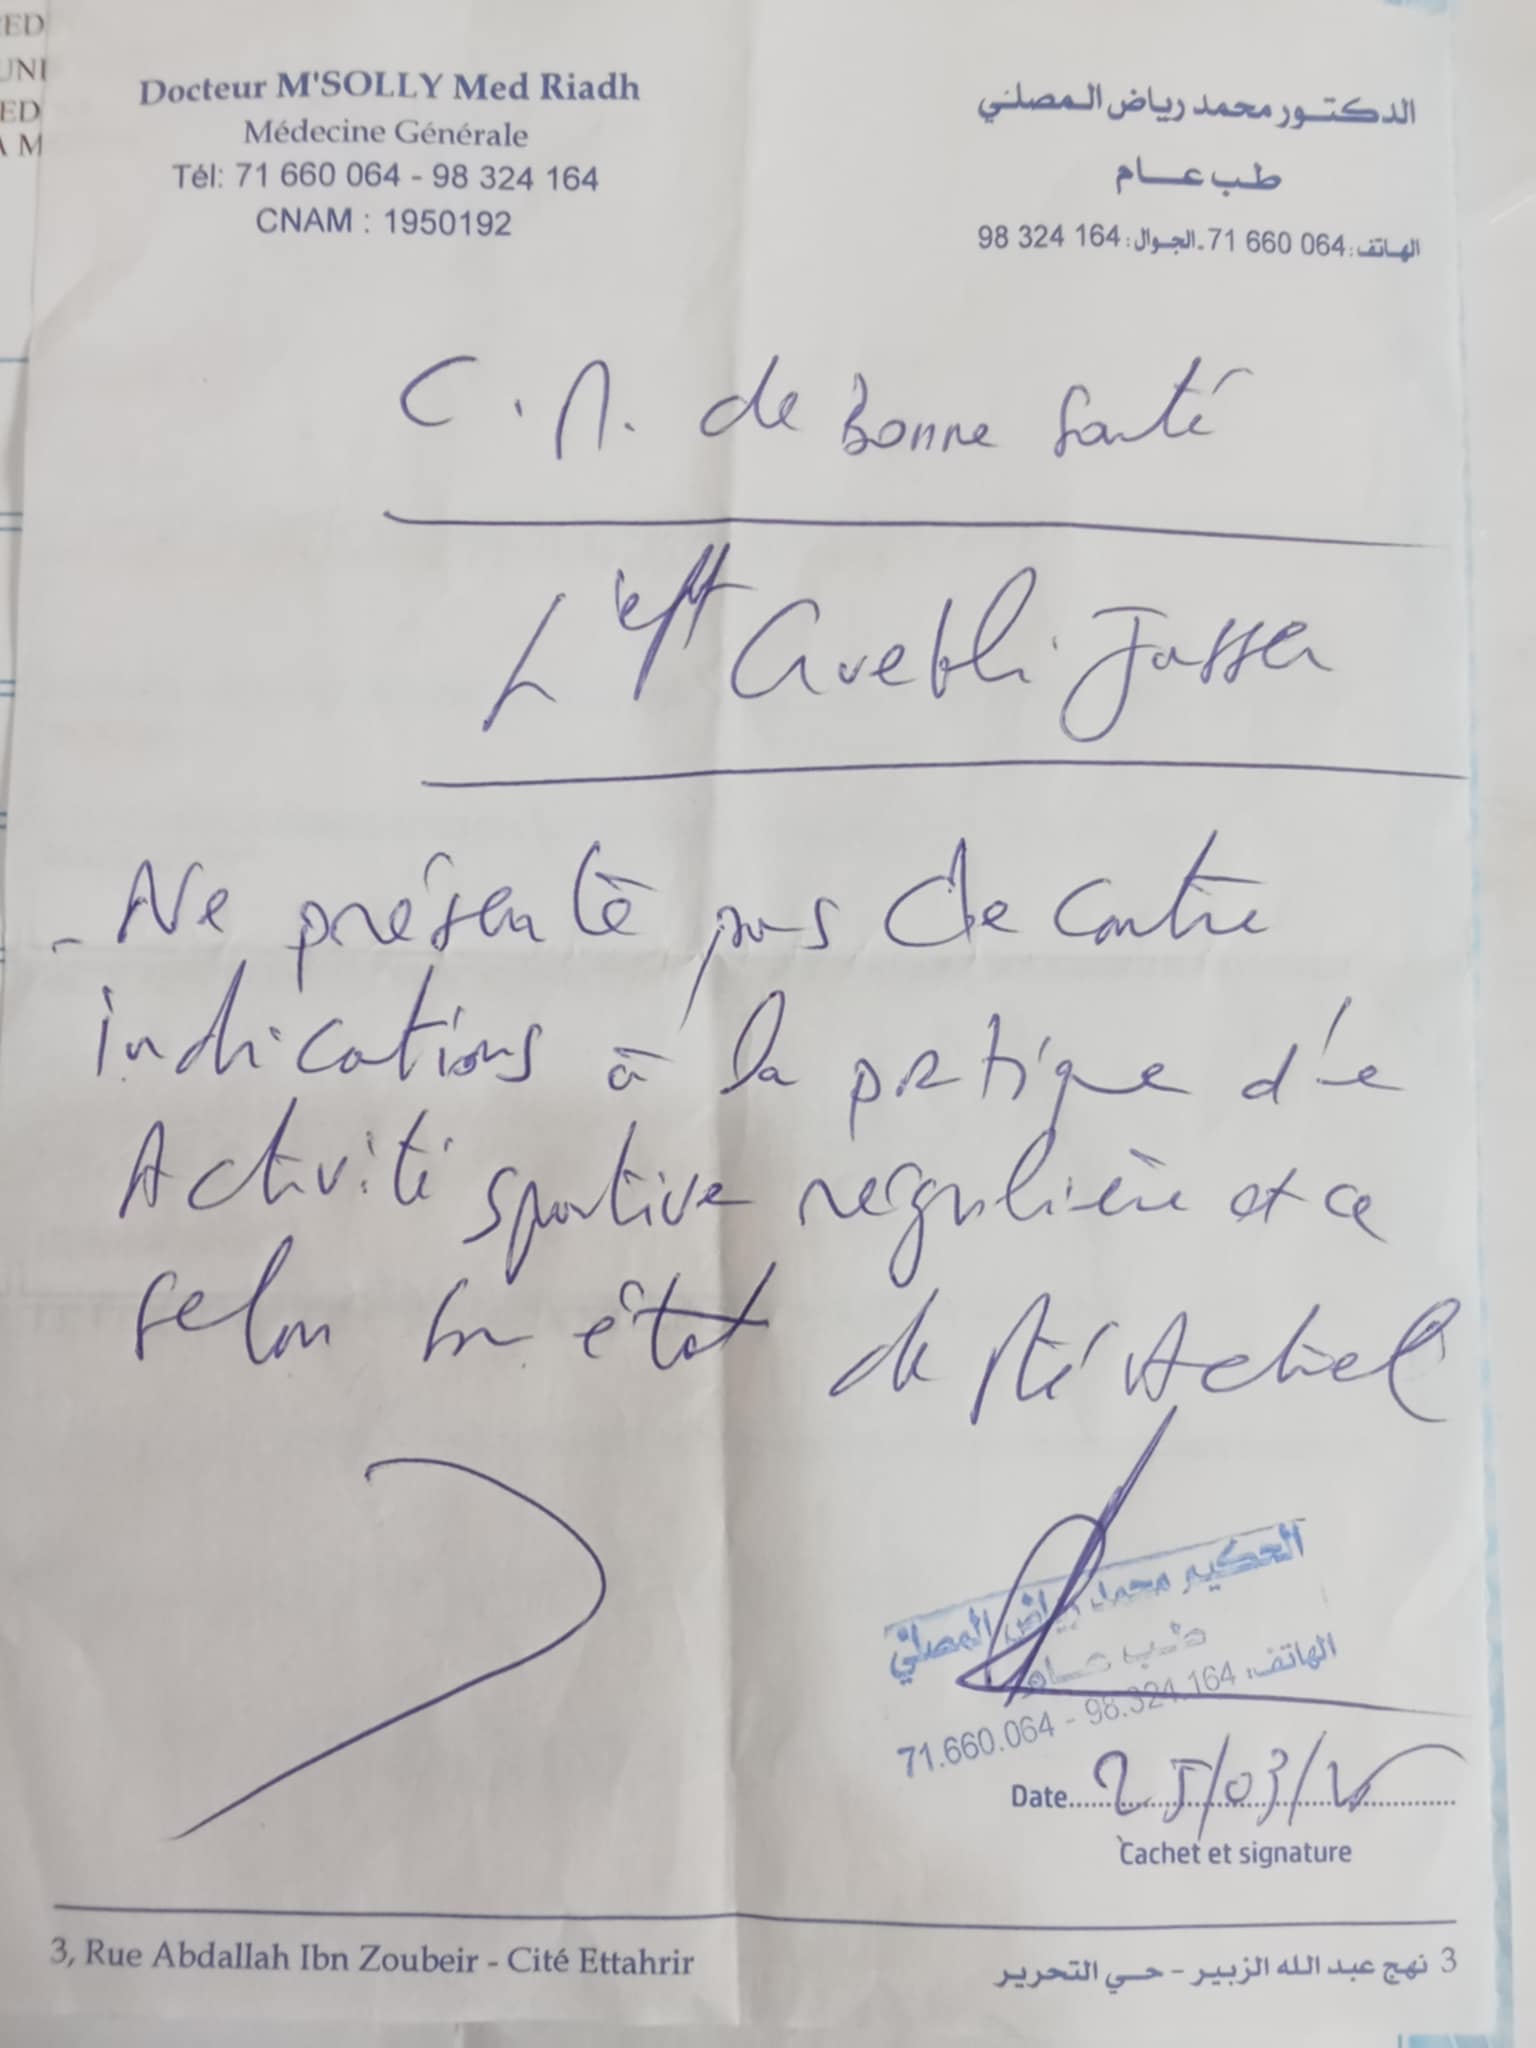 RED
UNI
ED
A M
Docteur M'SOLLY Med Riadh
Médecine Générale
Tél: 71 660 064 - 98 324 164
CNAM : 1950192
الدكتور محمد رياض المصلي
طب عام
الهاتف: 71 660 064 ـ الجوال: 98 324 164
C.M. de Bonne Santé
Jasser
- Ne présente pas de contre
indications à la pratique d'e
Activité sportive régulière et ce
selon son état de sté Actuel
الحكيم محمد رياض المصلي
طب عام
الهاتف: 98.324.164 - 71.660.064
Date 25/03/
Cachet et signature
3, Rue Abdallah Ibn Zoubeir - Cité Ettahrir
3 نهج عبد الله الزبير - حي التحرير